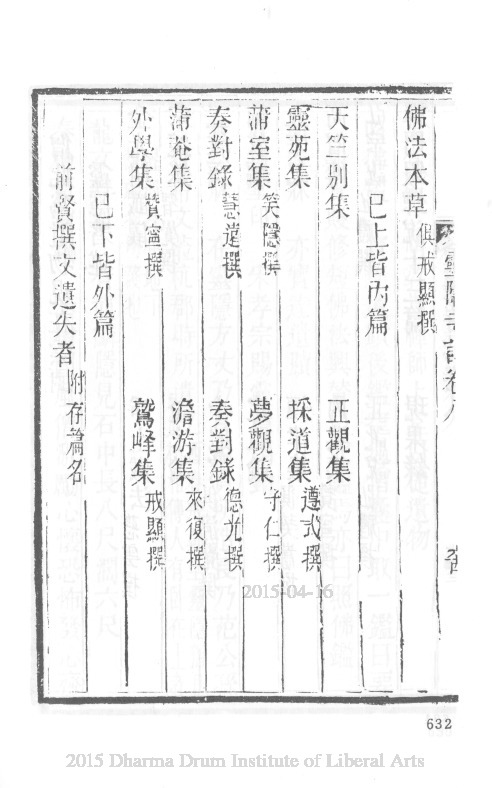 佛法本草 俱戒顯撰
已上皆內篇
天竺別集 正觀集
靈苑集 採道集 遵式撰
蒲室集 笑隱撰 夢觀集 守仁撰
奏對錄 慧遠撰 奏對錄 德光撰
蒲菴集 澹游集 來復撰
外學集 贊寧撰 鷲峰集 戒顯撰
已下皆外篇
前賢撰文遺失者 附存篇名
2015-04-16
632
2015 Dharma Drum Institute of Liberal Arts